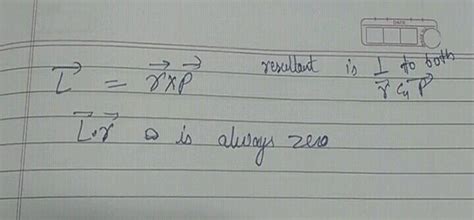 L⃗ = r⃗ × P⃗ resultant is ⊥ to both
r⃗ & P⃗
L⃗ . r⃗ is always zero